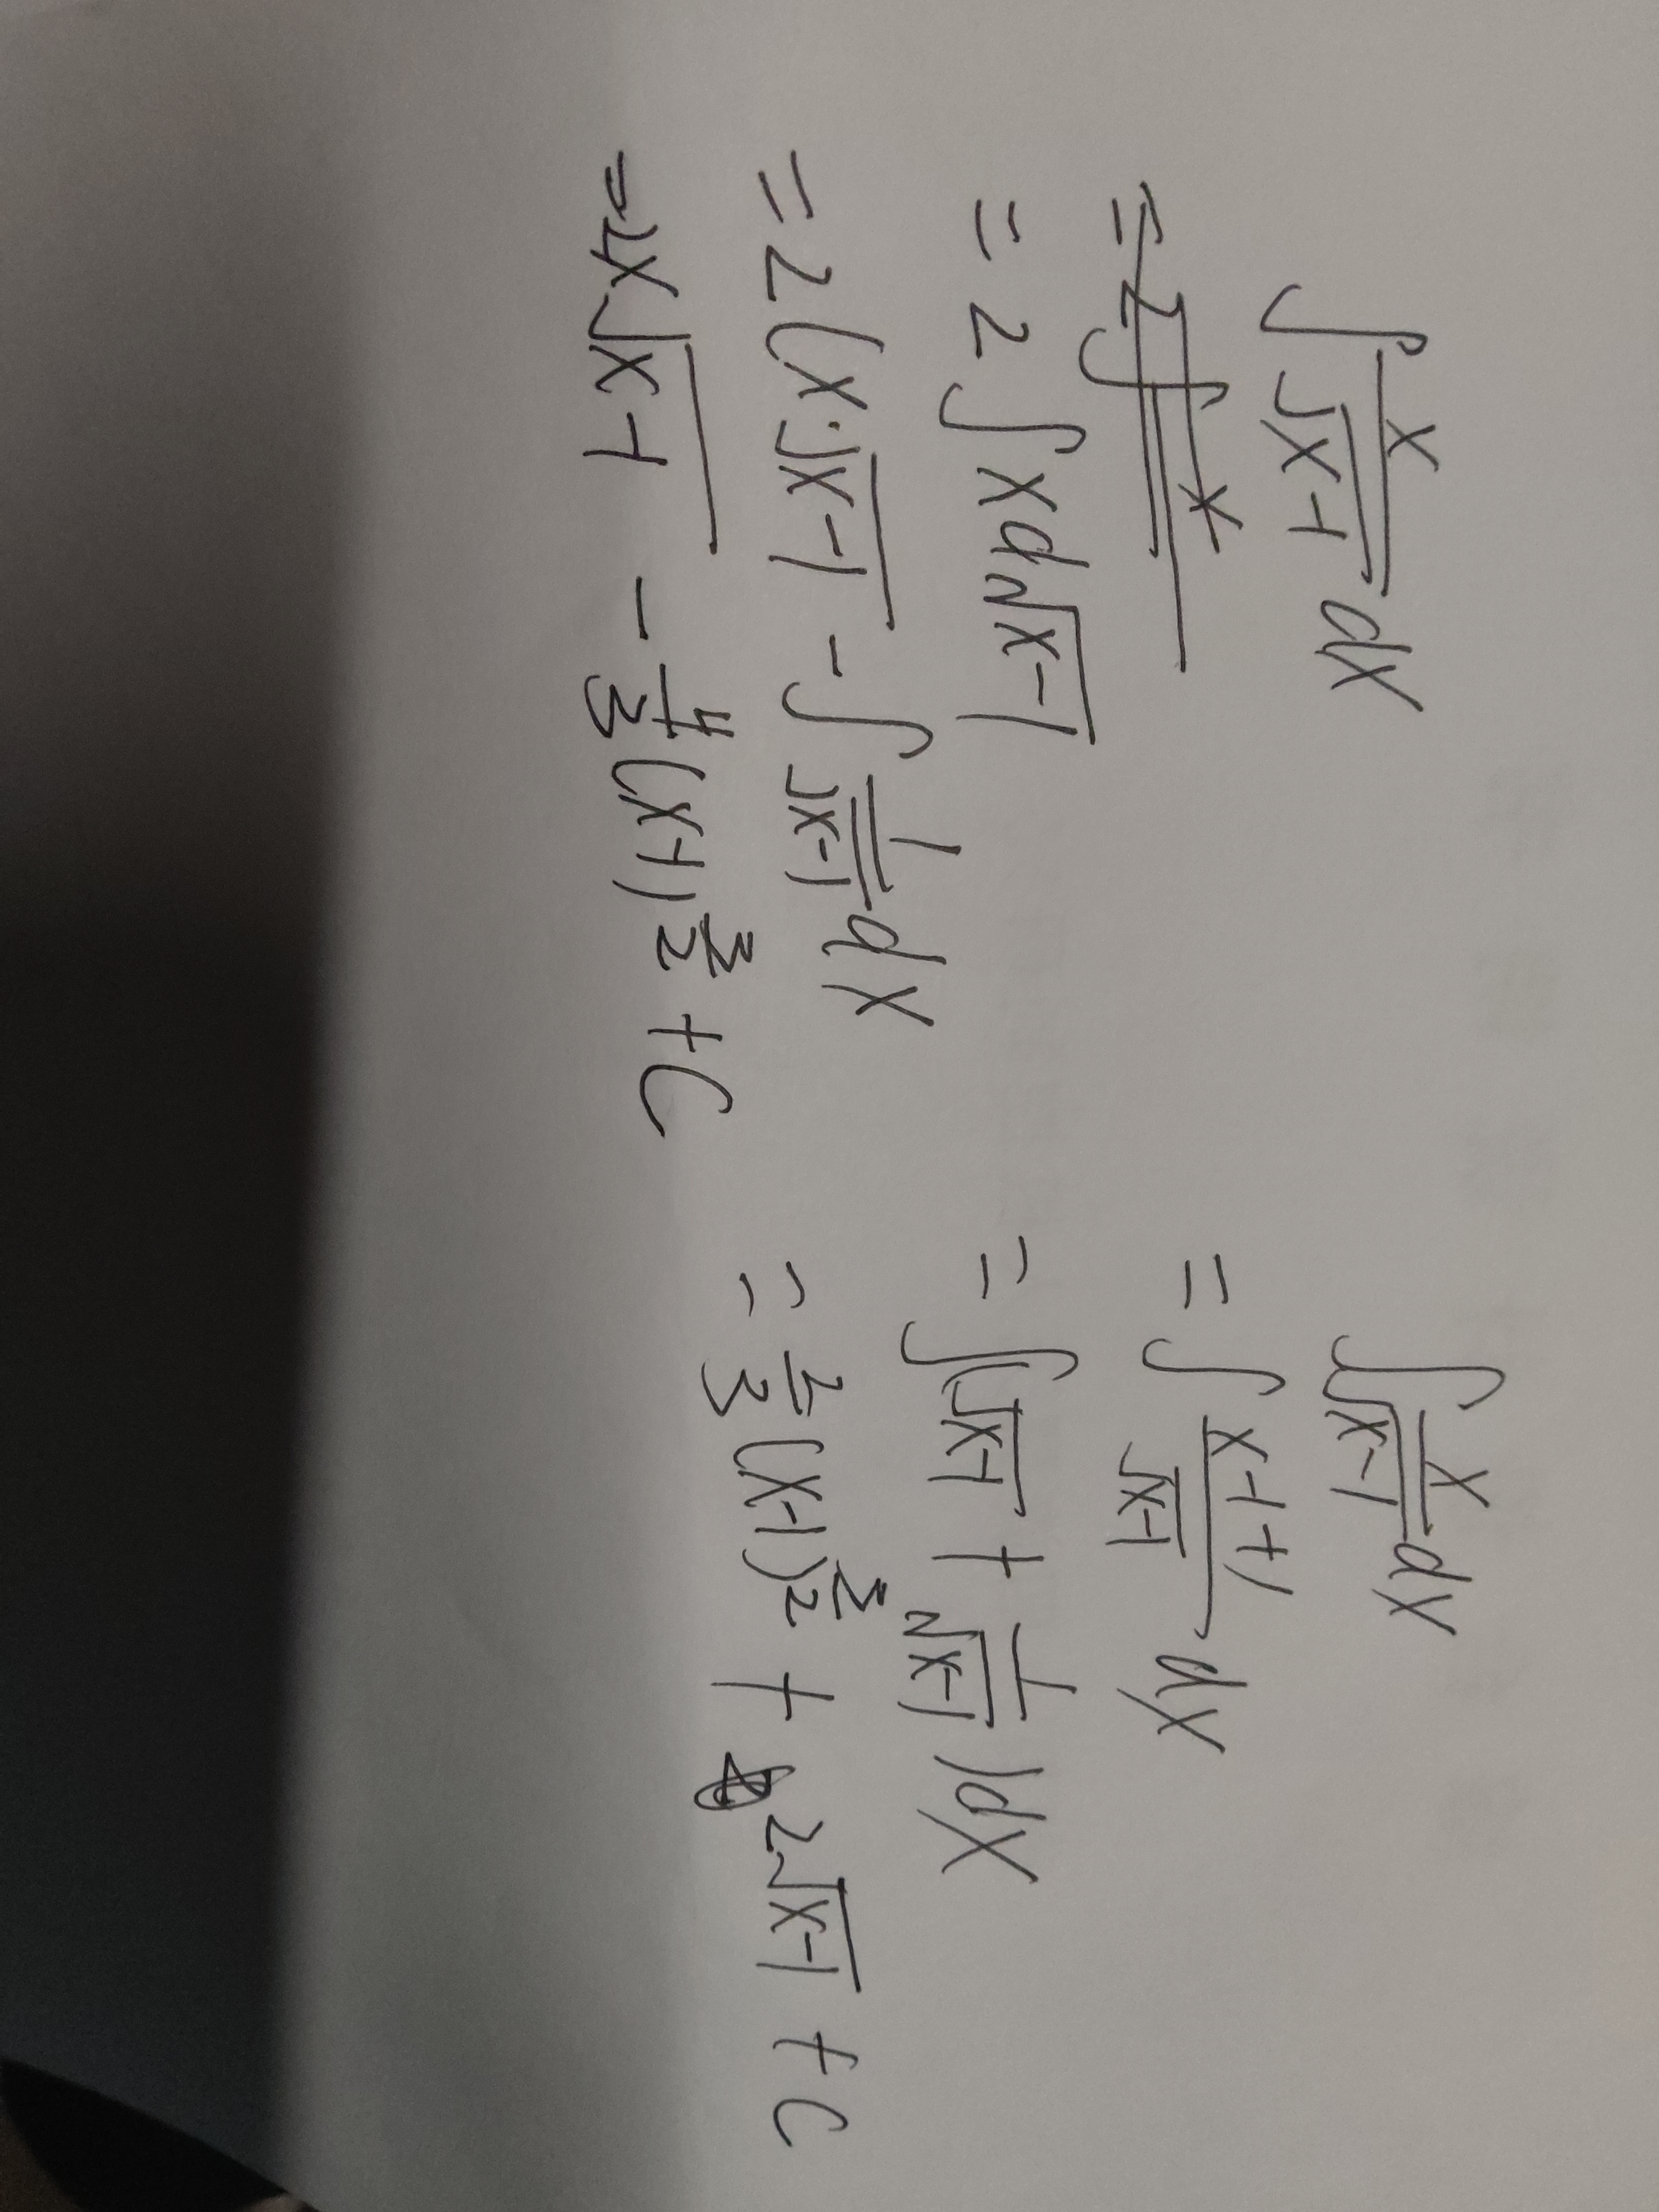 ∫ x/√(x-1) dx
= 2∫ x
= 2 ∫ x d√(x-1)
= 2 (x·√(x-1) - ∫ 1/√(x-1) dx
= 2x√(x-1) - 4/3 (x-1)^(3/2) + C
∫ x/√(x-1) dx
= ∫ (x-1+1)/√(x-1) dx
= ∫(√(x-1) + 1/√(x-1)) dx
= 2/3 (x-1)^(3/2) + 2√(x-1) + C